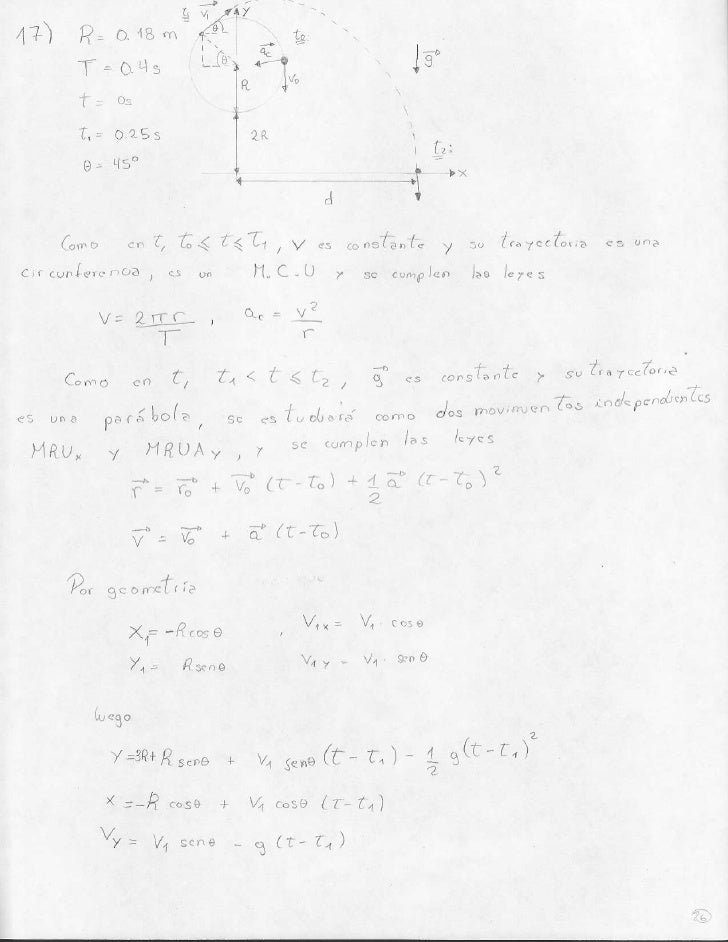 17) R = 0.18 m
T = 0.4 s
t = 0s
t₁ = 0.25 s
θ = 45°
t₁ v₁ y
θ
θ
t₀
a_c
v₀
R
2R
g
t₂:
x
d
Como en t, t₀ ⩽ t ⩽ t₁, v es constante y su trayectoria es una
circunferencia, es un M.C.U y se cumplen las leyes
v = 2πr/T , a_c = v²/r
Como en t, t₁ < t ⩽ t₂, g⃗ es constante y su trayectoria
es una parábola, se estudiará como dos movimientos independientes
MRUx y MRUAy, y se cumplen las leyes
r⃗ = r⃗₀ + v⃗₀ (t - t₀) + 1/2 a⃗ (t - t₀)²
v⃗ = v⃗₀ + a⃗ (t - t₀)
Por geometría
X₁ = -R cos θ , V₁x = V₁ · cos θ
Y₁ = R sen θ V₁y = V₁ · sen θ
luego
Y = 3R + R sen θ + V₁ sen θ (t - t₁) - 1/2 g (t - t₁)²
X = -R cos θ + V₁ cos θ (t - t₁)
Vy = V₁ sen θ - g (t - t₁)
26